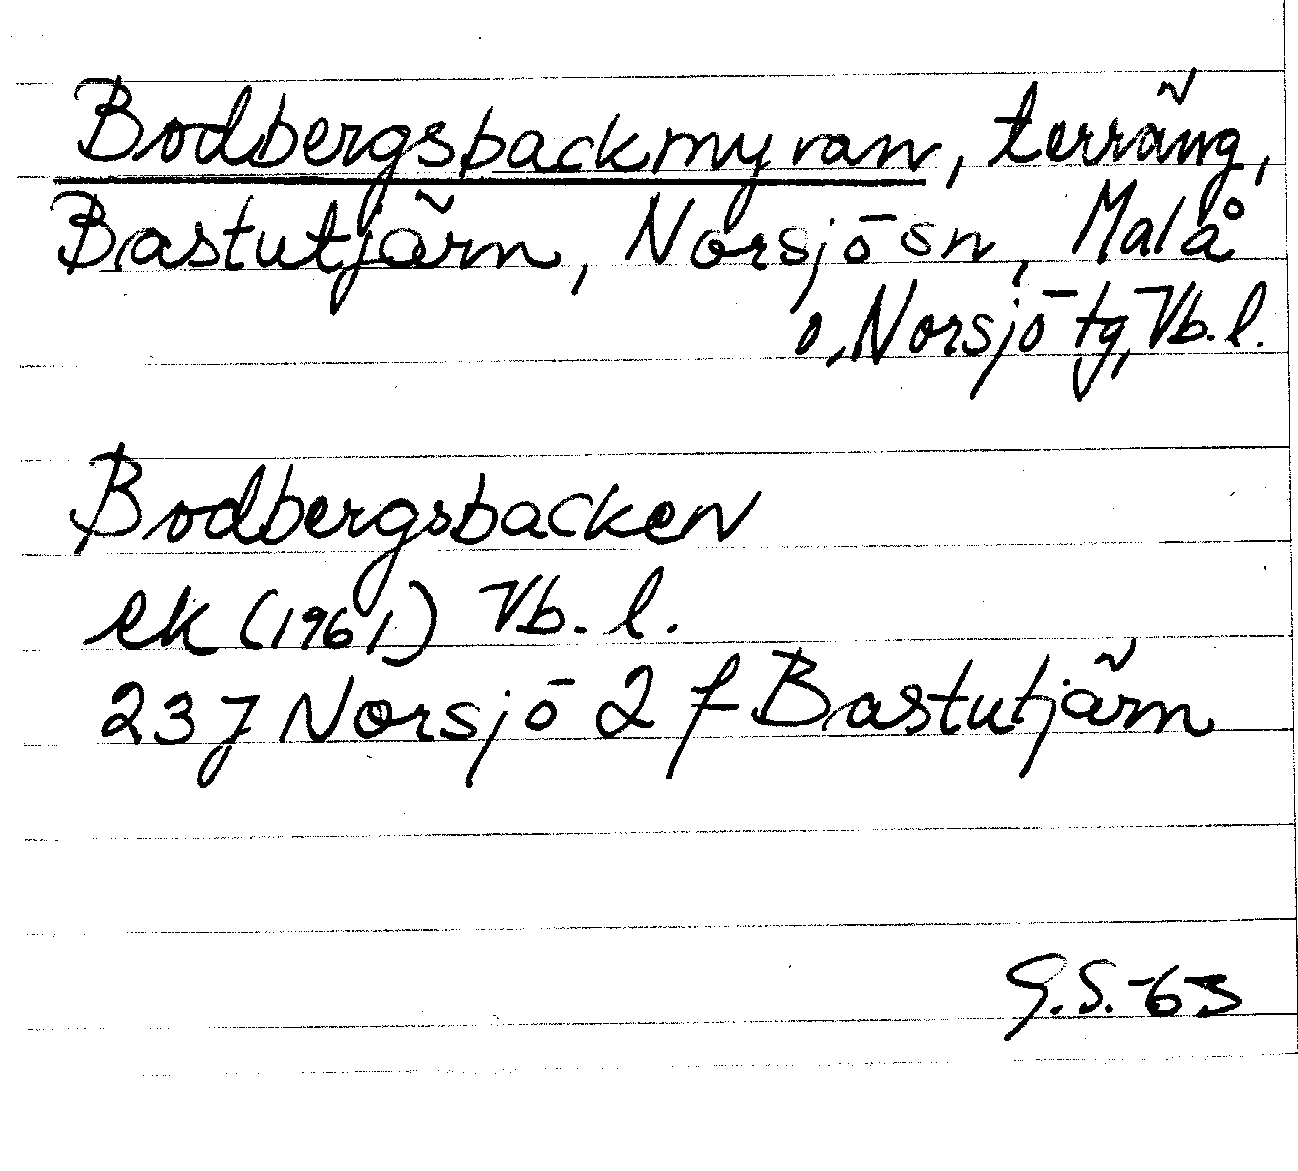 Bodbergsbackmyran, terräng,
Bastutjärn, Norsjö sn, Malå
o, Norsjö tg, Vb. l.
Bodbergsbacken
ek (1961) Vb. l.
23 J Norsjö 2 f Bastutjärn
G.S. -63